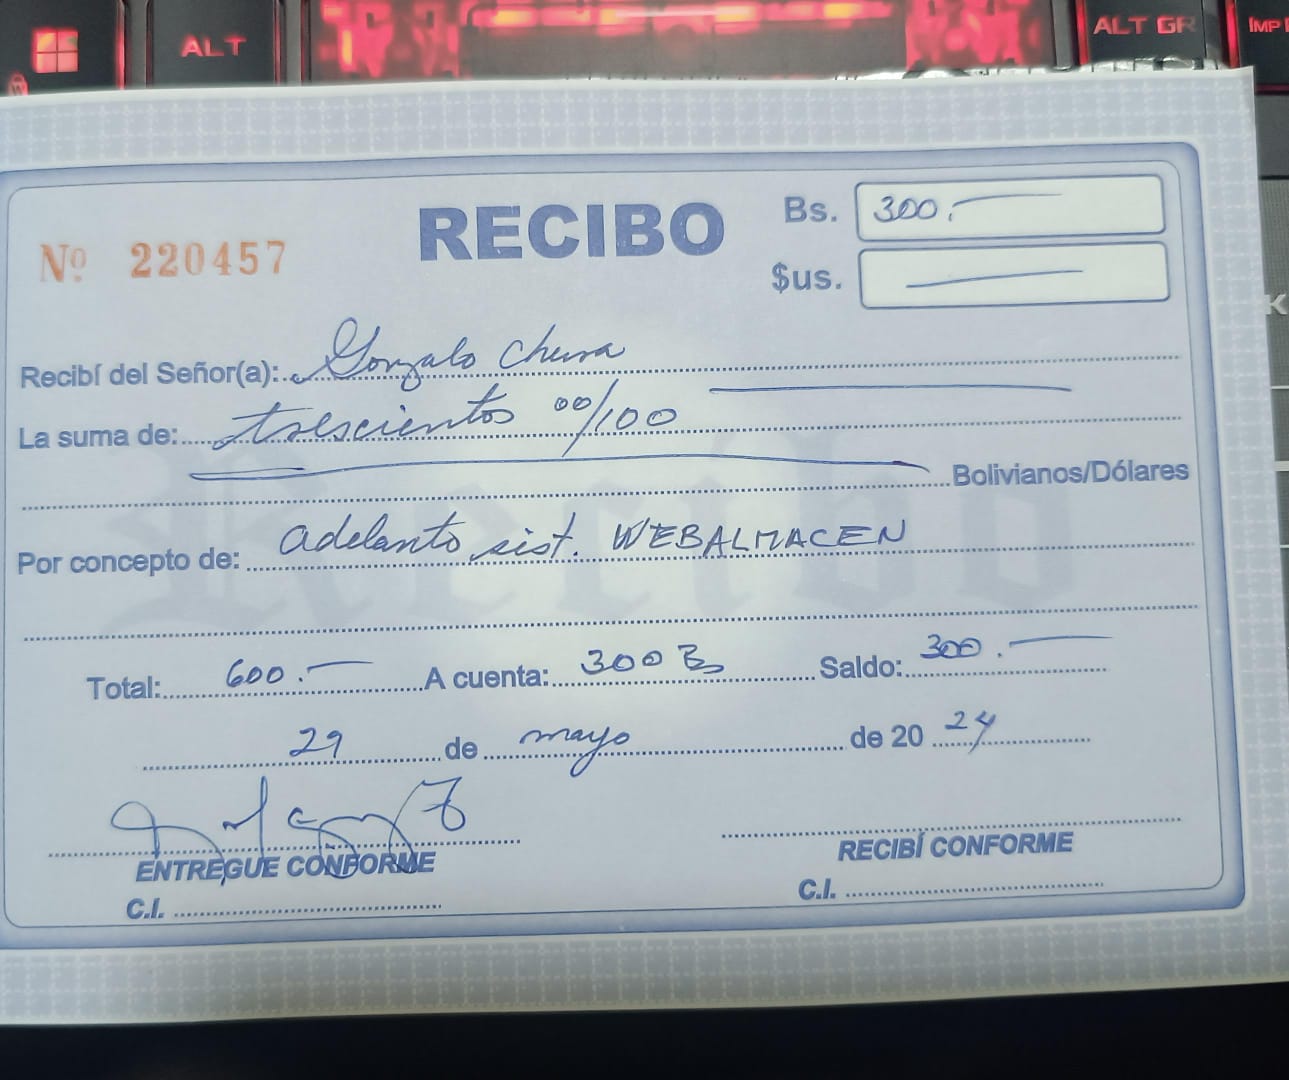 ALT
ALT GR
IMP
K
RECIBO
Nº 220457
Bs. 300.-
$us.
Recibí del Señor(a): Gonzalo Chura
La suma de: trescientos 00/100
Bolivianos/Dólares
Por concepto de: adelanto sist. WEBALMACEN
Total: 600.- A cuenta: 300 Bs Saldo: 300.-
29 de mayo de 20 24
ENTREGUE CONFORME
RECIBÍ CONFORME
C.I.
C.I.